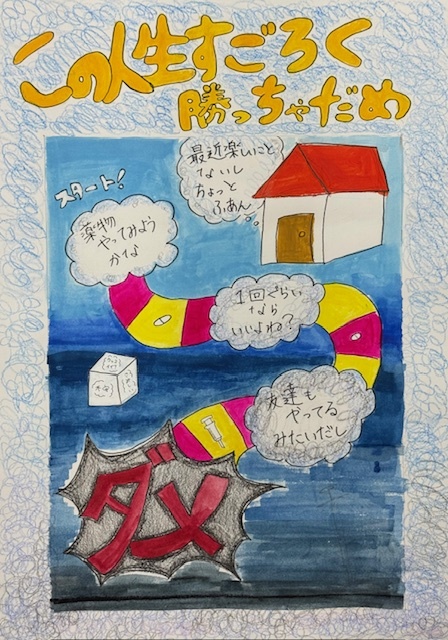 この人生すごろく
勝っちゃだめ
最近楽しいこと
ないし
ちょっと
ふあん
スタート!
薬物
やってみよう
かな
1回ぐらい
なら
いいよね?
友達も
やってる
みたいだし
ダメ